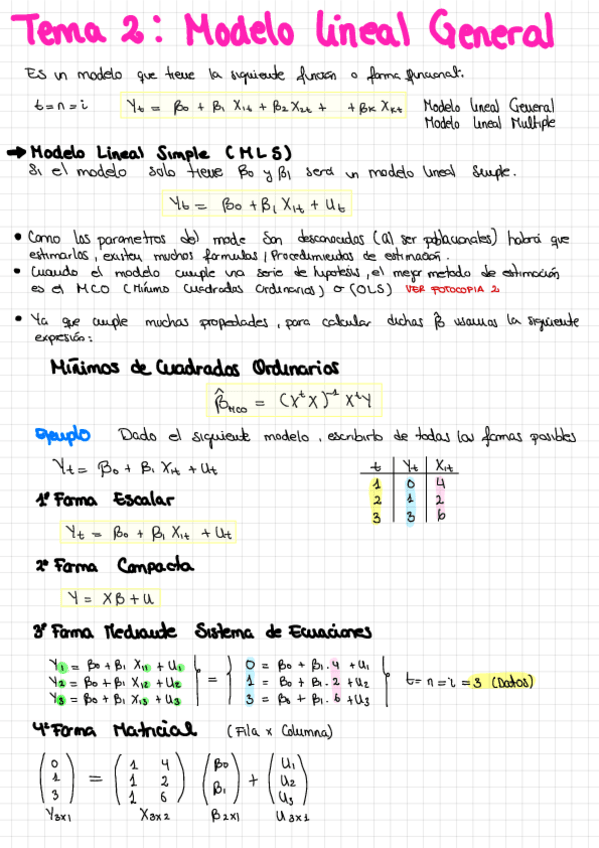 Tema 2: Modelo Lineal General
Es un modelo que tiene la siguiente función o forma funcional:
t=n=i Yt = β0 + β1 X1t + β2 X2t + + βK XKt Modelo lineal General
Modelo lineal Multiple
→ Modelo Lineal Simple (MLS)
Si el modelo solo tiene β0 y β1 será un modelo lineal simple.
Yt = β0 + β1 X1t + Ut
• Como los parametros del mode son desconocidos (al ser poblacionales) habrá que
estimarlos, existen muchos formulas / Procedimientos de estimación.
• Cuando el modelo cumple una serie de hipotesis, el mejor metodo de estimación
es el MCO (Mínimo Cuadrados Ordinarios) o (OLS) VER FOTOCOPIA 2
• Ya que cumple muchas propiedades, para calcular dichas β̂ usamos la siguiente
expresión:
Mínimos de Cuadrados Ordinarios
β̂MCO = (XᵗX)⁻¹ XᵗY
Ejemplo Dado el siguiente modelo, escribirlo de todas las formas posibles
Yt = β0 + β1 X1t + Ut
t Yt X1t
1 0 4
2 1 2
3 3 6
1º Forma Escalar
Yt = β0 + β1 X1t + Ut
2º Forma Compacta
Y = XB + U
3º Forma Mediante Sistema de Ecuaciones
Y1 = β0 + β1 X11 + U1 0 = β0 + β1 · 4 + U1
Y2 = β0 + β1 X12 + U2 = 1 = β0 + β1 · 2 + U2 t = n = i = 3 (Datos)
Y3 = β0 + β1 X13 + U3 3 = β0 + β1 · 6 + U3
4º Forma Matricial (Fila x Columna)
0 1 4 β0 U1
1 = 1 2 β1 + U2
3 1 6 U3
Y3x1 X3x2 B2x1 U3x1